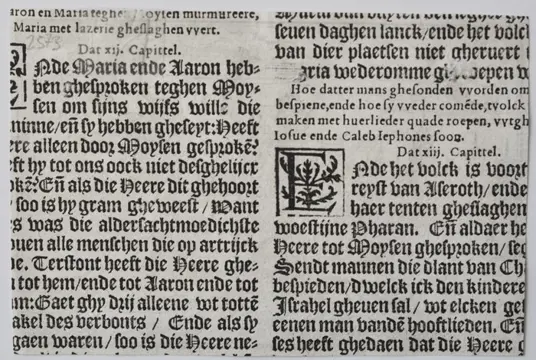 aron en Maria teghen Moyſen murmureere,
Maria met lazerie gheſlaghen vvert.
2573
Dat xij. Capittel.
Nde Maria ende Aaron heb-
ben gheſproken teghen Moy-
ſen om ſijns wijfs wille die
ninne/en̄ ſy hebben gheſeyt: Heeft
ere alleen door Moyſen geſprokē?
eft hy tot ons oock niet deſghelijcx
okē? En̄ als die Heere dit ghehoort
/ ſoo is hy gram gheweeſt / Want
s was die alderſachtmoedichſte
ouen alle menſchen die op artrijck
e. Terſtont heeft die Heere ghe-
tot hem/ende tot Aaron ende tot
am: Gaet ghy drij alleene wt tottē
akel des verbonts / Ende als ſy
gaen waren / ſoo is die Heere ne-
ſeuen daghen lanck/ende het volck
van dier plaetſen niet gheruert
aria wederomme
Hoe datter mans gheſonden vvorden om
beſpiene, ende hoe ſy vveder comēde, tvolck
maken met huerlieder quade roepen, vvtgh
Ioſue ende Caleb Iephones ſoon.
Dat xiij. Capittel.
ENde het volck is voort
reyſt van Aſeroth/ende
haer tenten gheſlaghen
woeſtijne Pharan. En̄ aldaer he
Heere tot Moyſen gheſproken/ ſeg
Sendt mannen die dlant van Ch
beſpieden/dwelck ick den kindere
Iſrahel gheuen ſal / wt elcken ge
eenen man vandē hooftlieden. En̄
ſes heeft ghedaen dat die Heere g